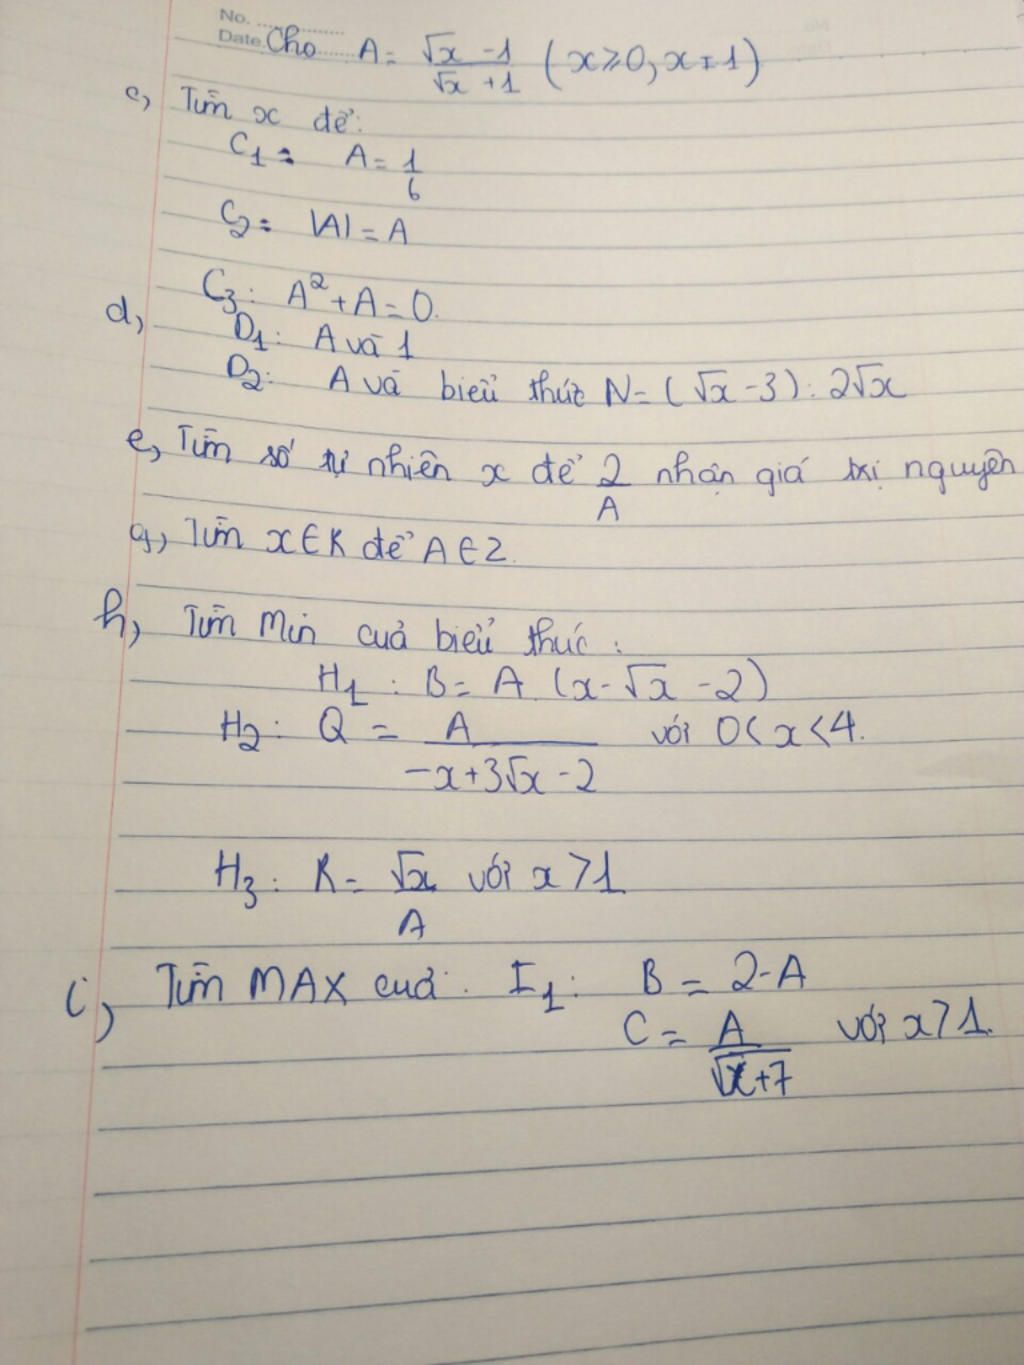 No. ............
Date Cho A = \frac{√x - 1}{√x + 1} (x ≥ 0, x ≠ 1)
c, Tìm x để:
C1: A = \frac{1}{6}
C2: |A| = A
C3: A² + A = 0.
d,
D1: A và 1
D2: A và biểu thức N = (√x - 3) : 2√x
e, Tìm số tự nhiên x để \frac{2}{A} nhận giá trị nguyên
g, Tìm x ∈ R để A ∈ Z.
h, Tìm Min cuả biểu thức:
H1: B = A. (x - √x - 2)
H2: Q = \frac{A}{-x + 3√x - 2} với 0 < x < 4.
H3: K = \frac{√x}{A} với x > 1
i, Tìm MAX cuả: I1: B = 2 - A
C = \frac{A}{√x + 7} với x > 1.